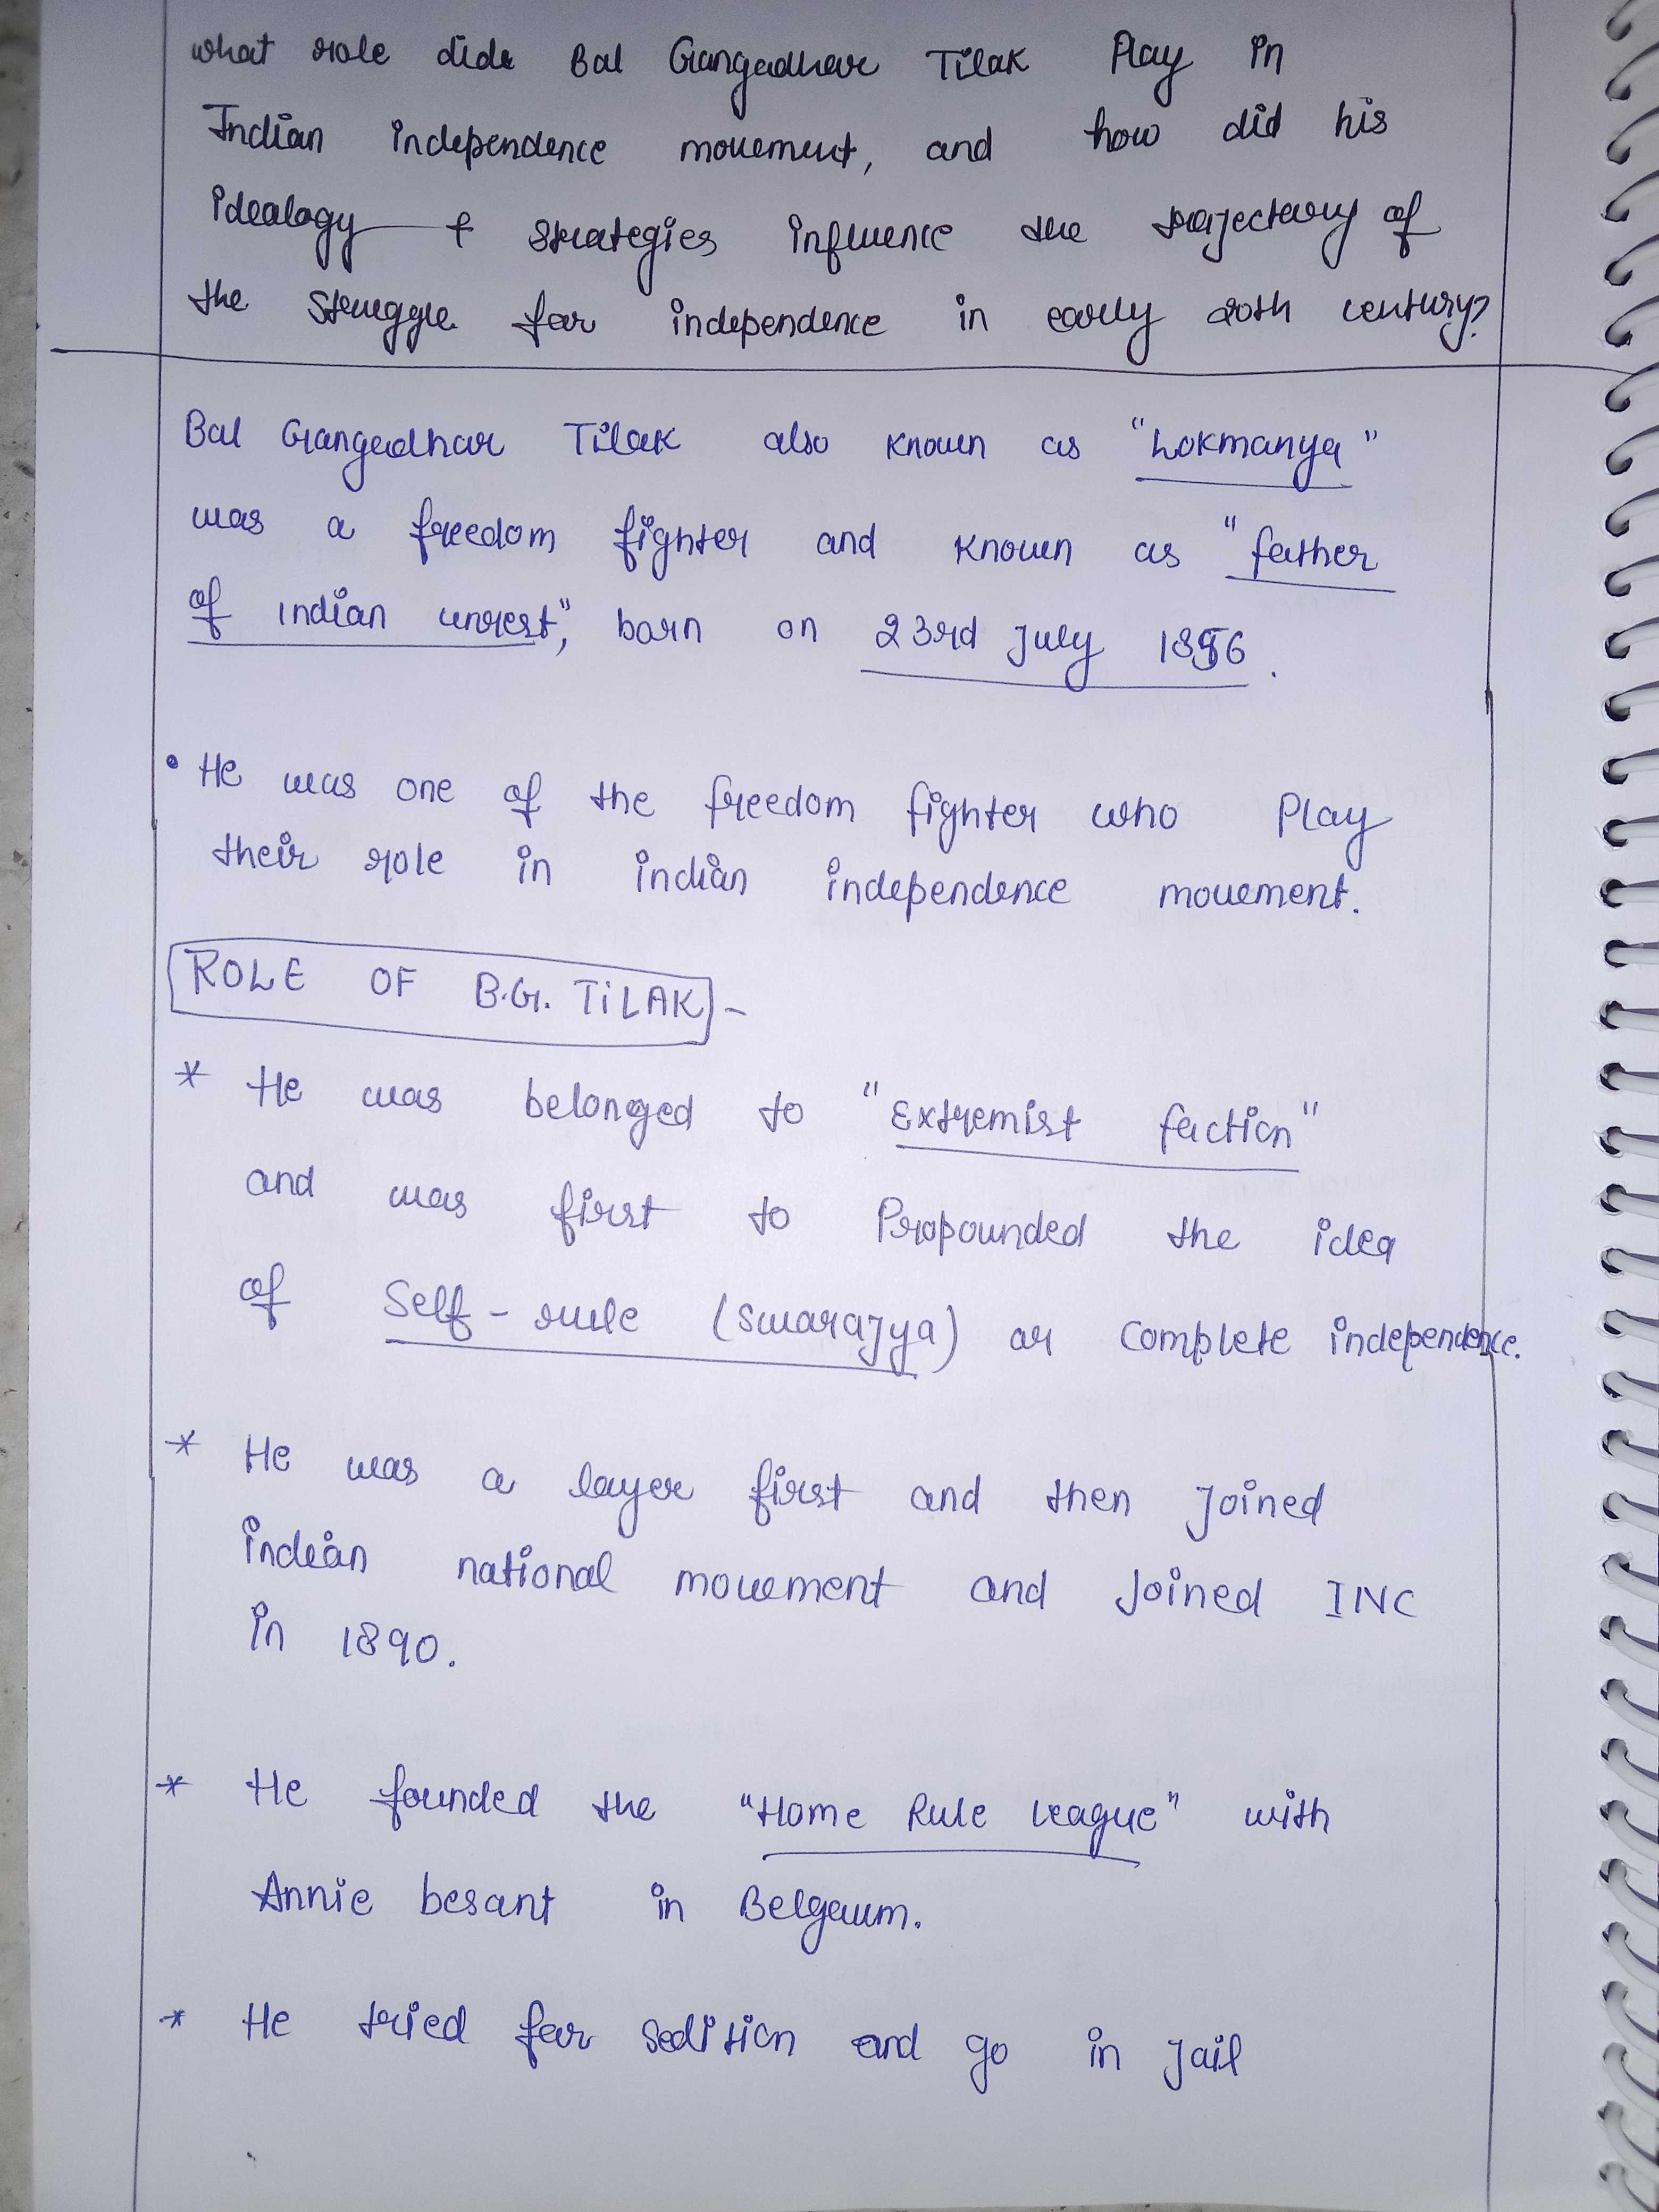 what role did Bal Gangadhar Tilak Play in
Indian independence movement, and how did his
idealogy + strategies influence the trajectory of
the struggle for independence in early 20th century?
Bal Gangadhar Tilak also known as "Lokmanya"
was a freedom fighter and known as "father
of indian unrest", born on 23rd July 1856.
• He was one of the freedom fighter who Play
their role in indian independence movement.
ROLE OF B.G. TiLAK -
* He was belonged to "Extremist faction"
and was first to Propounded the idea
of Self-rule (swarajya) or complete independence.
* He was a layer first and then joined
indian national movement and joined INC
in 1890.
* He founded the "Home Rule league" with
Annie besant in Belgaum.
* He tried for sedition and go in jail